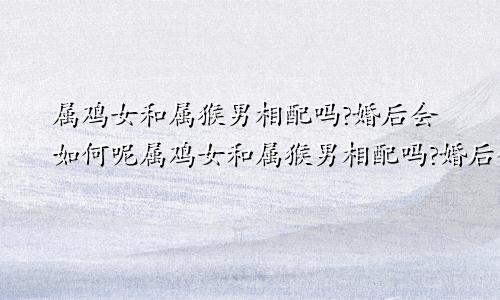 属鸡女和属猴男相配吗?婚后会
如何呢属鸡女和属猴男相配吗?婚后